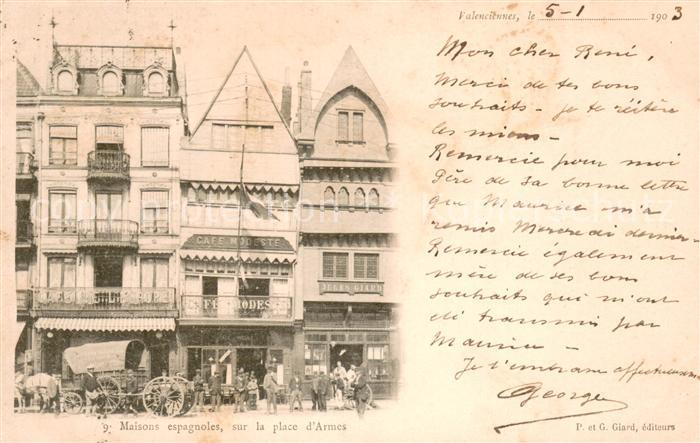 Valenciennes, le 5-1 1903
Mon cher René,
Merci de tes bons
souhaits - je te réitère
les miens -
Remercie pour moi
Père de sa bonne lettre
que Maurice m'a
remis Mercredi dernier -
Remercie également
mère de ses bons
souhaits qui m'ont
été transmis par
Maurice -
Je t'embrasse affectueusement
George
CAFÉ MODESTE
CAFÉ MODESTE
JULES GIARD
9. Maisons espagnoles, sur la place d'Armes
P. et G. Giard, éditeurs